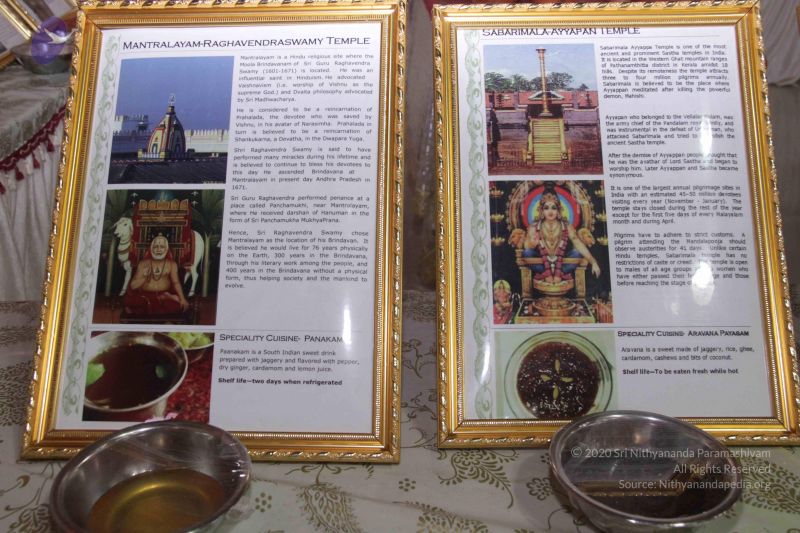 MANTRALAYAM-RAGHAVENDRASWAMY TEMPLE
Mantralayam is a Hindu religious site where the
Moola Brindavanam of Sri Guru Raghavendra
Swamy (1601-1671) is located. He was an
influential saint in Hinduism. He advocated
Vaishnavism (i.e. worship of Vishnu as the
supreme God.) and Dvaita philosophy advocated
by Sri Madhwacharya.
He is considered to be a reincarnation of
Prahalada, the devotee who was saved by
Vishnu, in his avatar of Narasimha. Prahalada in
turn is believed to be a reincarnation of
Shankukarna, a Devatha, in the Dwapara Yuga.
Shri Raghavendra Swamy is said to have
performed many miracles during his lifetime and
is believed to continue to bless his devotees to
this day He ascended Brindavana at
Mantralayam in present day Andhra Pradesh in
1671.
Sri Guru Raghavendra performed penance at a
place called Panchamukhi, near Mantralayam,
where he received darshan of Hanuman in the
form of Sri Panchamukha MukhyaPrana.
Hence, Sri Raghavendra Swamy chose
Mantralayam as the location of his Brindavan. It
is believed he would live for 76 years physically
on the Earth, 300 years in the Brindavana,
through his literary work among the people, and
400 years in the Brindavana without a physical
form, thus helping society and the mankind to
evolve.
SPECIALITY CUISINE- PANAKAM
Paanakam is a South Indian sweet drink
prepared with jaggery and flavored with pepper,
dry ginger, cardamom and lemon juice.
Shelf life—two days when refrigerated
SABARIMALA-AYYAPAN TEMPLE
Sabarimala Ayyappa Temple is one of the most
ancient and prominent Sastha temples in India.
It is located in the Western Ghat mountain ranges
of Pathanamthitta district in Kerala amidst 18
hills. Despite its remoteness the temple attracts
three to four million pilgrims annually.
Sabarimala is believed to be the place where
Ayyappan meditated after killing the powerful
demon, Mahishi.
Ayyappan who belonged to the Vellalar Kulam, was
the army chief of the Pandalam royal family, and
was instrumental in the defeat of who
attacked Sabarimala and tried to the
ancient Sastha temple.
After the demise of Ayyappan people thought that
he was the avathar of Lord Sastha and began to
worship him. Later Ayyappan and Sastha became
synonymous.
It is one of largest annual pilgrimage sites in
India with an estimated 45–50 million devotees
visiting every year (November - January). The
temple stays closed during the rest of the year
except for the first five days of every Malayalam
month and during April.
Pilgrims have to adhere to strict customs. A
pilgrim attending the Mandalapooja should
observe austerities for 41 days. Unlike certain
Hindu temples, Sabarimala Temple has no
restrictions of caste or creed. The temple is open
to males of all age groups and women who
have either passed their age and those
before reaching the stage of
SPECIALITY CUISINE- ARAVANA PAYASAM
Aravana is a sweet made of jaggery, rice, ghee,
cardamom, cashews and bits of coconut.
Shelf life—To be eaten fresh while hot
© 2020 Sri Nithyananda Paramashivam
All Rights Reserved
Source: Nithyanandapedia.org